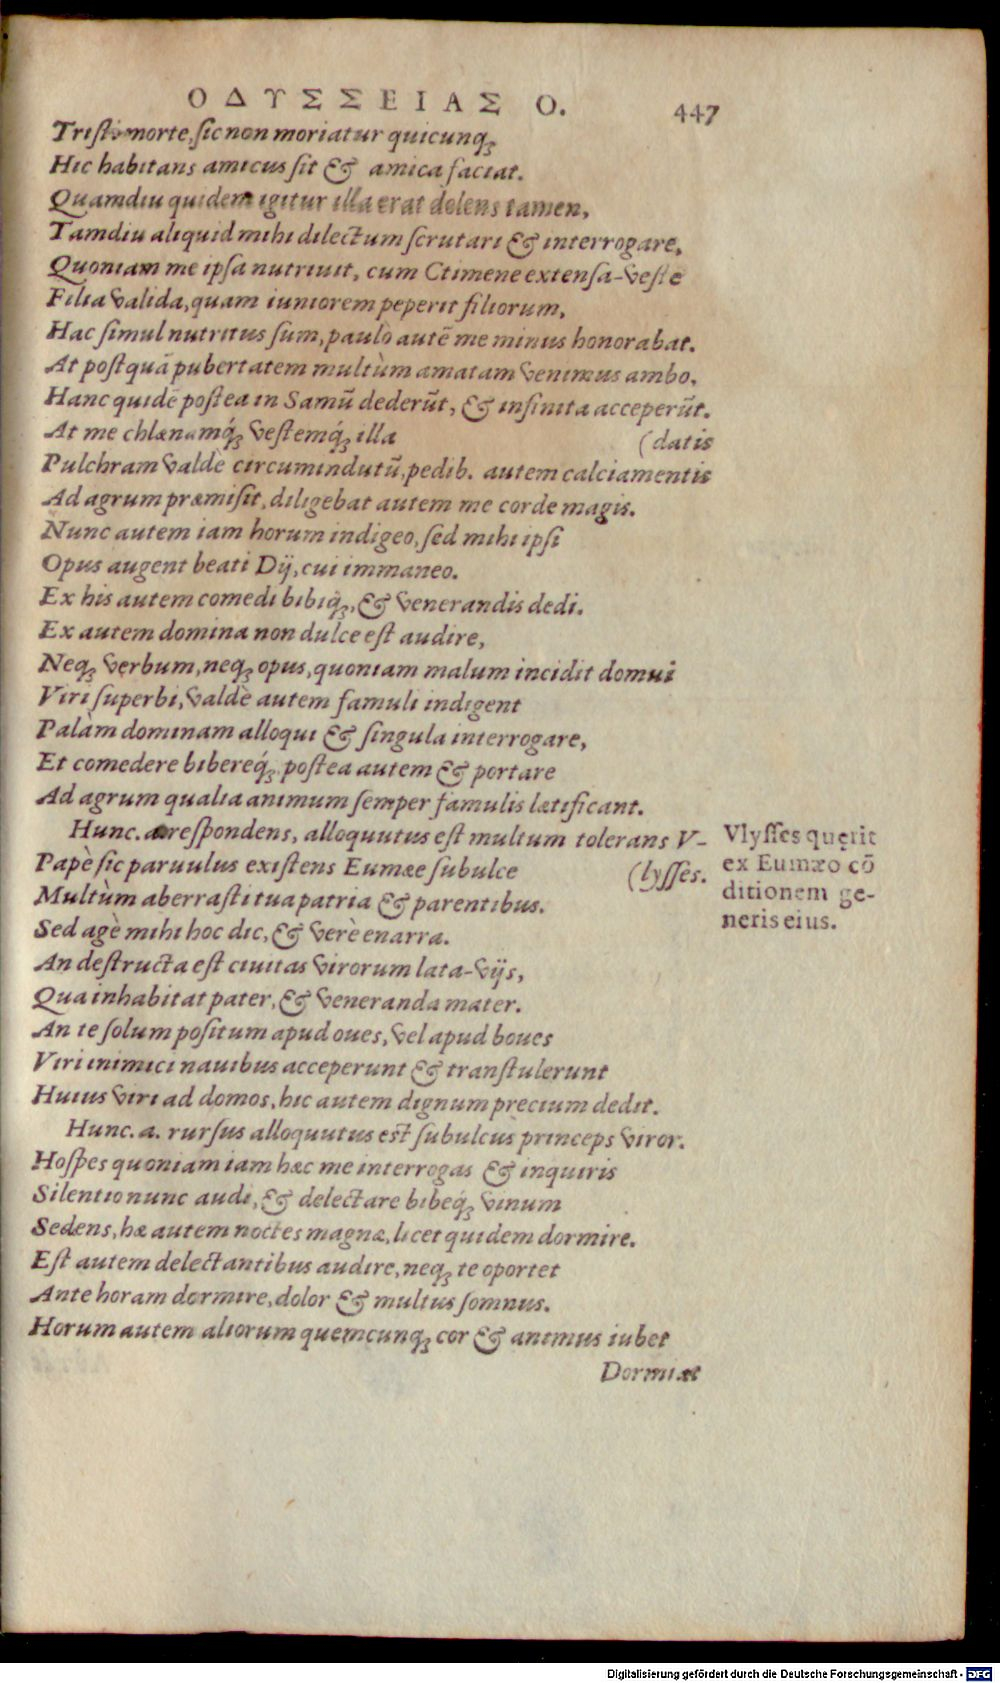 ΟΔΥΣΣΕΙΑΣ Ο. 447
Tristi morte, sic non moriatur quicunq;
Hic habitans amicus sit & amica faciat.
Quamdiu quidem igitur illa erat dolens tamen,
Tamdiu aliquid mihi dilectum scrutari & interrogare,
Quoniam me ipsa nutriuit, cum Ctimene extensa-veste
Filia valida, quam iuniorem peperit filiorum,
Hac simul nutritus sum, paulò autē me minus honorabat.
At postquā pubertatem multùm amatam venimus ambo,
Hanc quidē postea in Samū dederūt, & infinita acceperūt.
At me chlænamq́; vestemq́; illa (datis
Pulchram valdè circumindutū, pedib. autem calciamentis
Ad agrum præmisit, diligebat autem me corde magis.
Nunc autem iam horum indigeo, sed mihi ipsi
Opus augent beati Dij, cui immaneo.
Ex his autem comedi bibiq́;, & venerandis dedi.
Ex autem domina non dulce est audire,
Neq; verbum, neq; opus, quoniam malum incidit domui
Viri superbi, valdè autem famuli indigent
Palàm dominam alloqui & singula interrogare,
Et comedere bibereq́; postea autem & portare
Ad agrum qualia animum semper famulis lætificant.
Hunc. a. respondens, alloquutus est multum tolerans V-
Papè sic paruulus existens Eumæe subulce (lysses.
Multùm aberrasti tua patria & parentibus.
Sed agè mihi hoc dic, & verè enarra.
An destructa est ciuitas virorum lata-vijs,
Qua inhabitat pater, & veneranda mater.
An te solum positum apud oues, vel apud boues
Viri inimici nauibus acceperunt & transtulerunt
Huius viri ad domos, hic autem dignum precium dedit.
Hunc. a. rursus alloquutus est subulcus princeps viror.
Hospes quoniam iam hæc me interrogas & inquiris
Silentio nunc audi, & delectare bibeq́; vinum
Sedens, hæ autem noctes magnæ, licet quidem dormire.
Est autem delectantibus audire, neq; te oportet
Ante horam dormire, dolor & multus somnus.
Horum autem aliorum quemcunq; cor & animus iubet
Dormiat
Vlysses quęrit
ex Eumæo cō
ditionem ge-
neris eius.
Digitalisierung gefördert durch die Deutsche Forschungsgemeinschaft - DFG